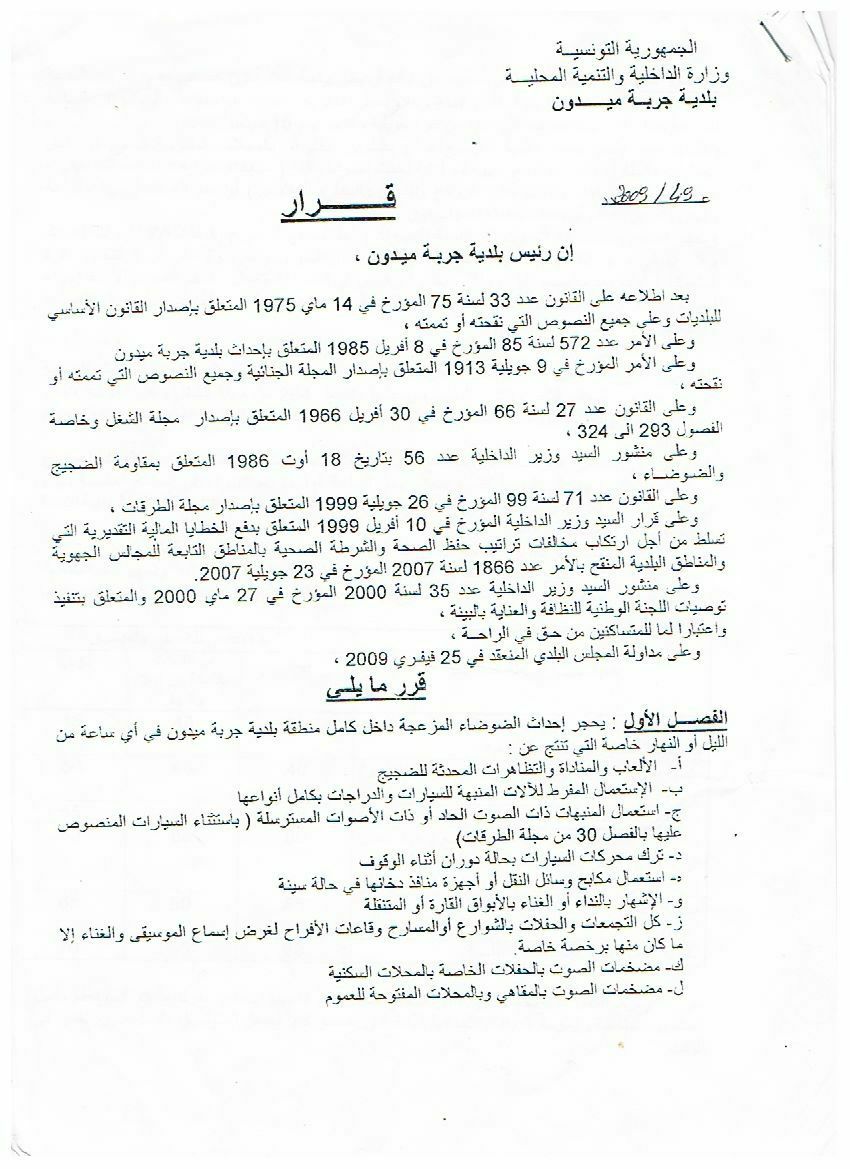 الجمهورية التونسية
وزارة الداخلية والتنمية المحلية
بلدية جربة ميدون
2009/49
قرار
إن رئيس بلدية جربة ميدون ،
بعد اطلاعه على القانون عدد 33 لسنة 75 المؤرخ في 14 ماي 1975 المتعلق بإصدار القانون الأساسي
للبلديات وعلى جميع النصوص التي نقحته أو تممته ،
وعلى الأمر عدد 572 لسنة 85 المؤرخ في 8 أفريل 1985 المتعلق بإحداث بلدية جربة ميدون
وعلى الأمر المؤرخ في 9 جويلية 1913 المتعلق بإصدار المجلة الجنائية وجميع النصوص التي تممته أو
نقحته ،
وعلى القانون عدد 27 لسنة 66 المؤرخ في 30 أفريل 1966 المتعلق بإصدار مجلة الشغل وخاصة
الفصول 293 الى 324 ،
وعلى منشور السيد وزير الداخلية عدد 56 بتاريخ 18 أوت 1986 المتعلق بمقاومة الضجيج
والضوضاء ،
وعلى القانون عدد 71 لسنة 99 المؤرخ في 26 جويلية 1999 المتعلق بإصدار مجلة الطرقات ،
وعلى قرار السيد وزير الداخلية المؤرخ في 10 أفريل 1999 المتعلق بدفع الخطايا المالية التقديرية التي
تسلط من أجل ارتكاب مخالفات تراتيب حفظ الصحة والشرطة الصحية بالمناطق التابعة للمجالس الجهوية
والمناطق البلدية المنقح بالأمر عدد 1866 لسنة 2007 المؤرخ في 23 جويلية 2007.
وعلى منشور السيد وزير الداخلية عدد 35 لسنة 2000 المؤرخ في 27 ماي 2000 والمتعلق بتنفيذ
توصيات اللجنة الوطنية للنظافة والعناية بالبيئة ،
واعتبارا لما للمتساكنين من حق في الراحة ،
وعلى مداولة المجلس البلدي المنعقد في 25 فيفري 2009 ،
قرر ما يلي
الفصل الأول : يحجر إحداث الضوضاء المزعجة داخل كامل منطقة بلدية جربة ميدون في أي ساعة من
الليل أو النهار خاصة التي تنتج عن :
أ- الألعاب والمناداة والتظاهرات المحدثة للضجيج
ب- الإستعمال المفرط للآلات المنبهة للسيارات والدراجات بكامل أنواعها
ج- استعمال المنبهات ذات الصوت الحاد أو ذات الأصوات المسترسلة ( باستثناء السيارات المنصوص
عليها بالفصل 30 من مجلة الطرقات)
د- ترك محركات السيارات بحالة دوران أثناء الوقوف
ه- استعمال مكابح وسائل النقل أو أجهزة منافذ دخانها في حالة سيئة
و- الإشهار بالنداء أو الغناء بالأبواق القارة أو المتنقلة
ز- كل التجمعات والحفلات بالشوارع أوالمسارح وقاعات الأفراح لغرض إسماع الموسيقى والغناء إلا
ما كان منها برخصة خاصة.
ك- مضخمات الصوت بالحفلات الخاصة بالمحلات السكنية
ل- مضخمات الصوت بالمقاهي وبالمحلات المفتوحة للعموم